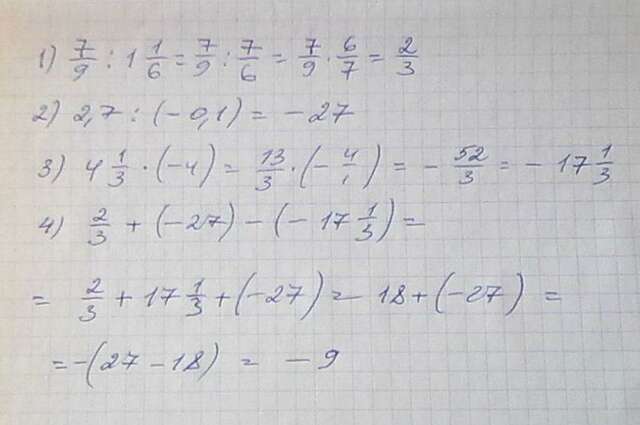 1) 7/9 : 1 1/6 = 7/9 : 7/6 = 7/9 · 6/7 = 2/3
2) 2,7 : (-0,1) = -27
3) 4 1/3 · (-4) = 13/3 · (-4/1) = -52/3 = -17 1/3
4) 2/3 + (-27) - (-17 1/3) =
= 2/3 + 17 1/3 + (-27) = 18 + (-27) =
= -(27 - 18) = -9